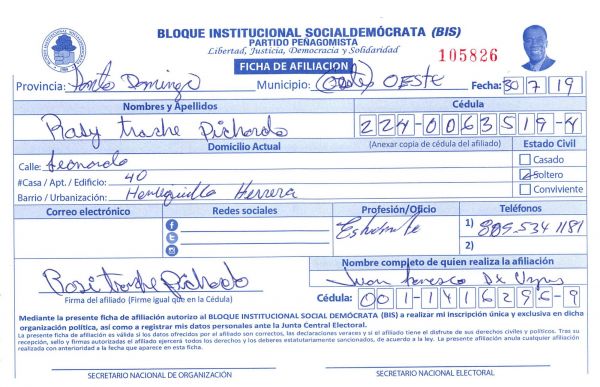 BLOQUE INSTITUCIONAL SOCIALDEMÓCRATA (BIS)
PARTIDO PEÑAGOMISTA
Libertad, Justicia, Democracia y Solidaridad
105826
FICHA DE AFILIACION
Provincia: Santo Domingo Municipio: OESTE Fecha: 30 7 19
Nombres y Apellidos Cédula
Pichardo 224-0063519-4
Domicilio Actual (Anexar copia de cédula del afiliado) Estado Civil
Calle: Leonardo Casado
#Casa / Apt. / Edificio: 40 Soltero
Barrio / Urbanización: Herrera Conviviente
Correo electrónico Redes sociales Profesión/Oficio Teléfonos
1) 809-534 1181
2)
Nombre completo de quien realiza la afiliación
Pichardo Juan
Firma del afiliado (Firme igual que en la Cédula) Cédula: 001-1416296-9
Mediante la presente ficha de afiliación autorizo al BLOQUE INSTITUCIONAL SOCIAL DEMÓCRATA (BIS) a realizar mi inscripción única y exclusiva en dicha
organización política, así como a registrar mis datos personales ante la Junta Central Electoral.
La presente ficha de afiliación es válida si los datos ofrecidos por el afiliado son correctos, las declaraciones veraces y si el titular tiene el disfrute de sus derechos civiles y políticos. Tras su
recepción, sello y firmas autorizadas el afiliado ejercerá todos los derechos y los deberes estatutariamente sancionados, de acuerdo a la ley. La presente afiliación anula cualquier afiliación
realizada con anterioridad a la fecha que aparece en esta ficha.
SECRETARIO NACIONAL DE ORGANIZACIÓN SECRETARIO NACIONAL ELECTORAL